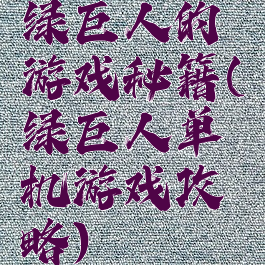 绿巨人的
游戏秘籍(
绿巨人单
机游戏攻
略)